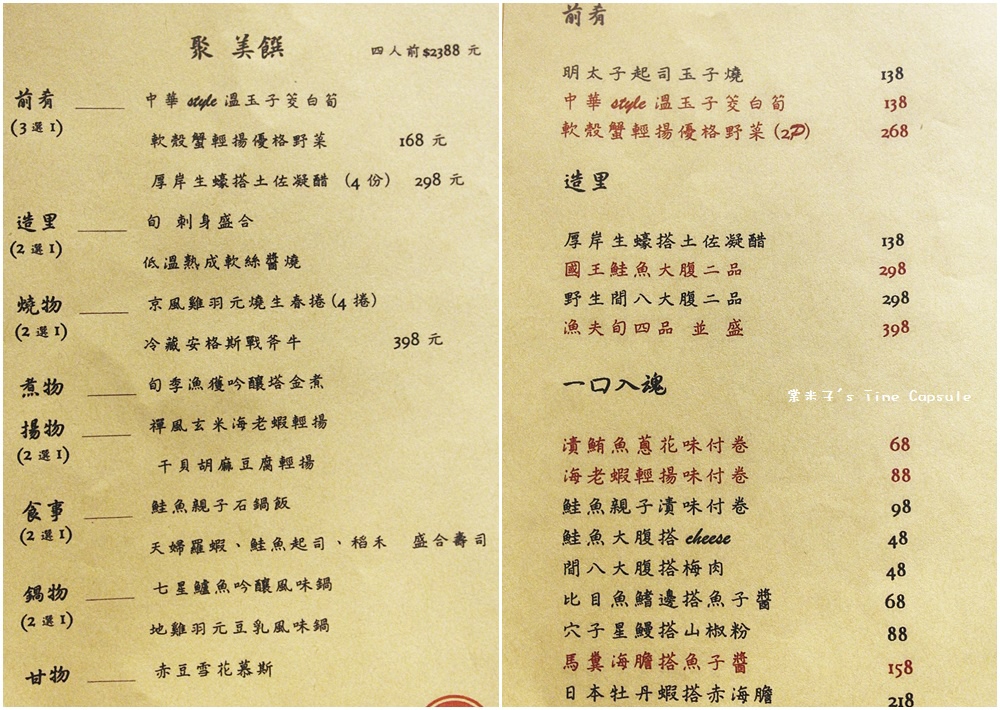 聚 美饌 四人前$2388 元
前肴 中華 style 溫玉子筊白筍
(3 選 1)
軟殼蟹輕揚優格野菜 168 元
厚岸生蠔搭土佐凝醋 (4 份) 298 元
造里 旬 刺身盛合
(2 選 1)
低溫熟成軟絲醬燒
燒物 京風雞羽元燒生春捲(4 捲)
(2 選 1)
冷藏安格斯戰斧牛 398 元
煮物 旬季漁獲吟釀塔金煮
揚物 禪風玄米海老蝦輕揚
(2 選 1)
干貝胡麻豆腐輕揚
食事 鮭魚親子石鍋飯
(2 選 1)
天婦羅蝦、鮭魚起司、稻禾 盛合壽司
鍋物 七星鱸魚吟釀風味鍋
(2 選 1)
地雞羽元豆乳風味鍋
甘物 赤豆雪花慕斯
前肴
明太子起司玉子燒 138
中華 style 溫玉子筊白筍 138
軟殼蟹輕揚優格野菜 (2P) 268
造里
厚岸生蠔搭土佐凝醋 138
國王鮭魚大腹二品 298
野生間八大腹二品 298
漁夫旬四品 並 盛 398
一口入魂
業末子's Time Capsule
漬鮪魚蔥花味付卷 68
海老蝦輕揚味付卷 88
鮭魚親子漬味付卷 98
鮭魚大腹搭 cheese 48
間八大腹搭梅肉 48
比目魚鰭邊搭魚子醬 68
穴子星鰻搭山椒粉 88
馬糞海膽搭魚子醬 158
日本牡丹蝦搭赤海膽 218